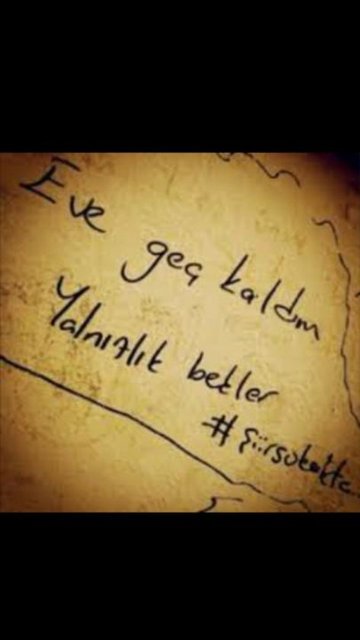 Eve geç kaldım
Yalnızlık bekler
#şiirsokakta